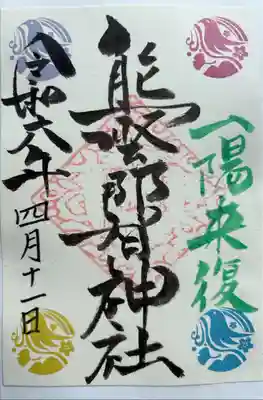 一陽来復
熊野那智神社
令和六年 四月十一日